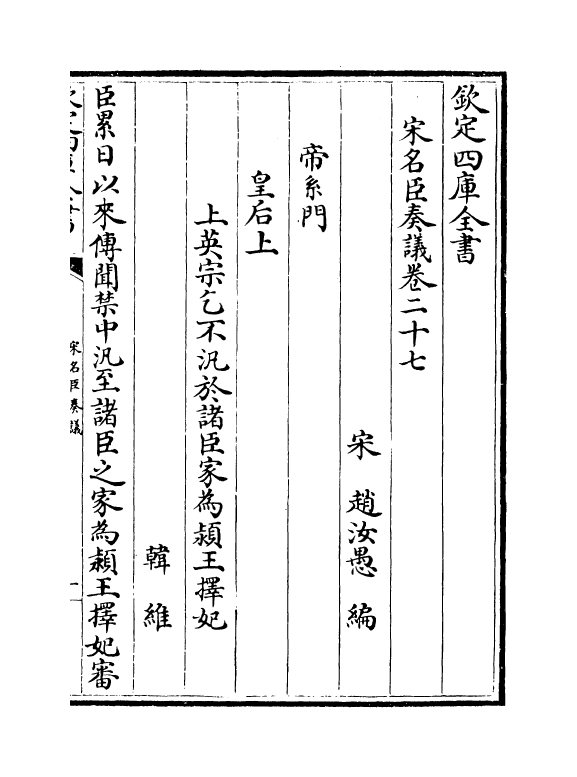 欽定四庫全書
宋名臣奏議卷二十七
宋 趙汝愚 編
帝系門
皇后上
上英宗乞不汎於諸臣家為潁王擇妃
韓維
臣累日以來傳聞禁中汎至諸臣之家為潁王擇妃審
宋名臣奏議
一